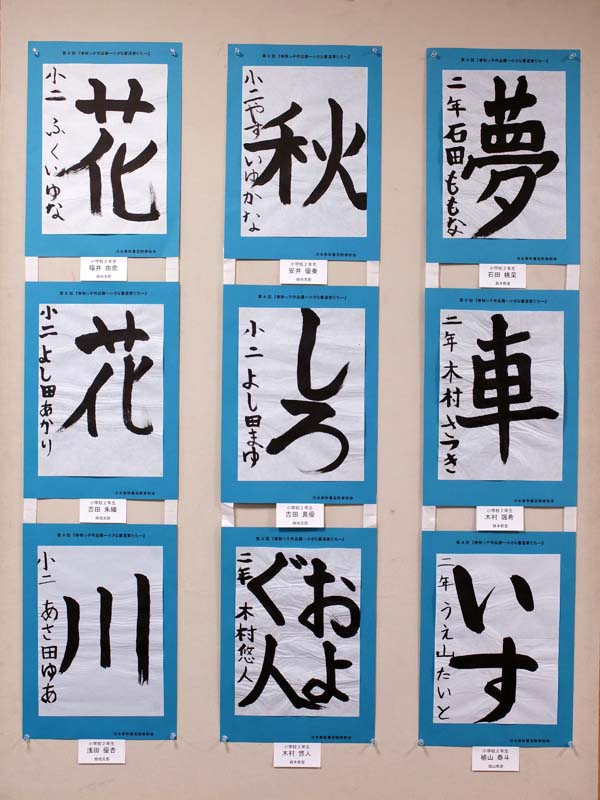 花
小二 ふくいゆな
小学校2年生
福井 由奈
秋
小二やすいゆかな
小学校2年生
安井 優奏
夢
二年石田ももな
小学校2年生
石田 桃菜
花
小二よし田あかり
小学校2年生
吉田 朱織
しろ
小二よし田まゆ
小学校2年生
吉田 真優
車
二年木村さつき
小学校2年生
木村 颯希
川
小二 あさ田ゆあ
小学校2年生
浅田 優杏
およ
ぐ人
二年 木村悠人
小学校2年生
木村 悠人
いす
二年うえ山たいと
小学校2年生
植山 泰斗